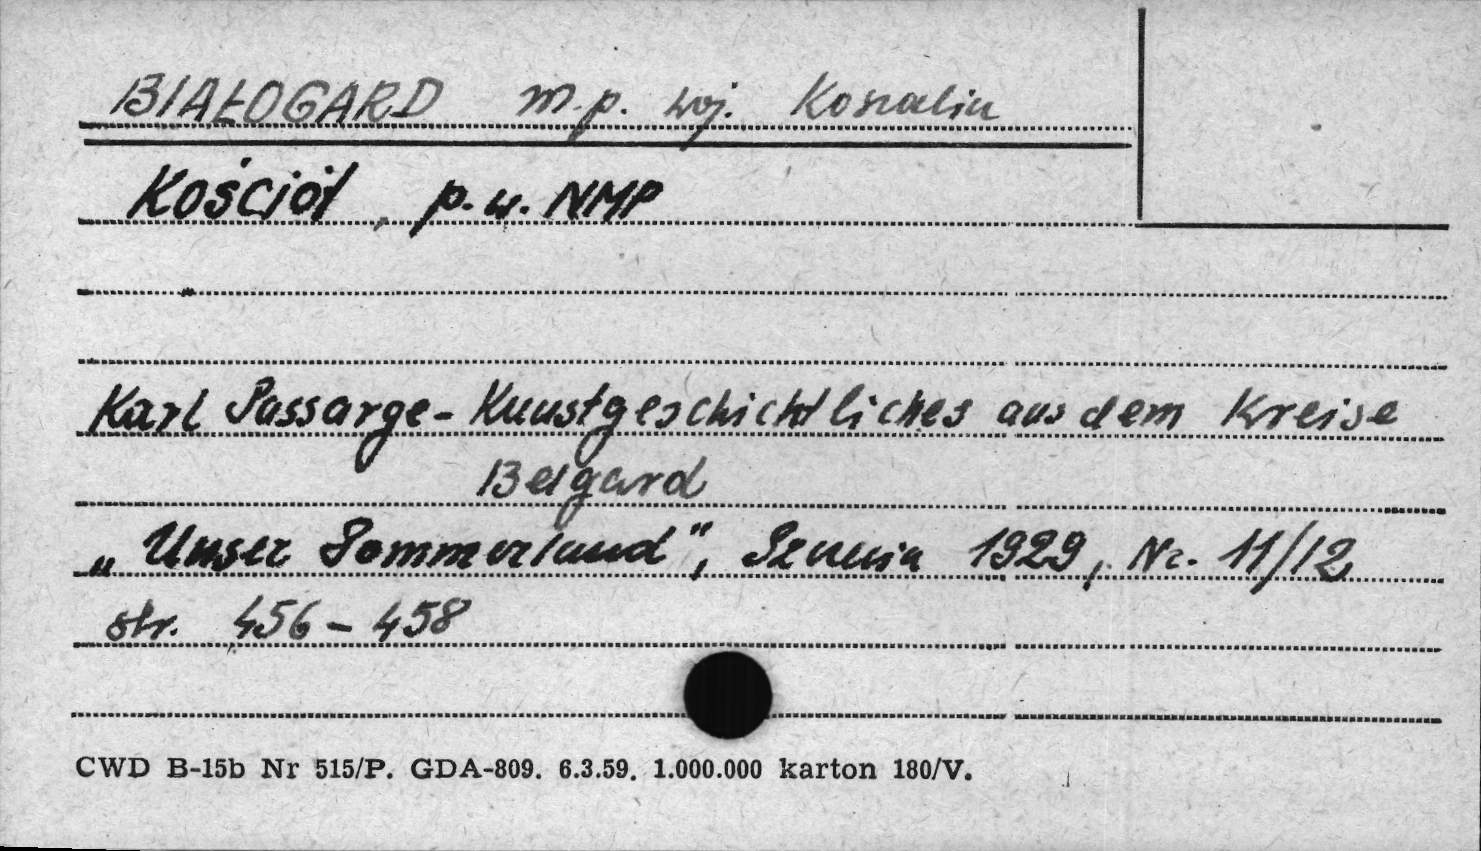 BIAŁOGARD m.p. woj. Koszalin
Kościół, p.w. NMP
Karl Passarge - Kunstgeschichtliches aus dem Kreise
Belgard
„Unser Pommerland”, 1929, Nr. 11/12
str. 456 - 458
CWD B-15b Nr 515/P. GDA-809. 6.3.59. 1.000.000 karton 180/V.